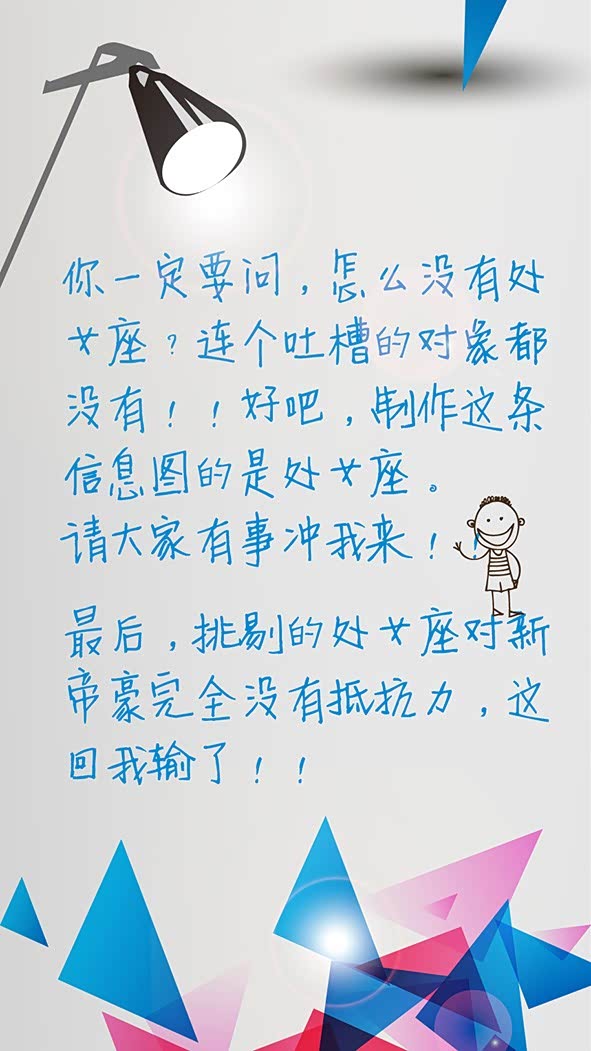 你一定要问，怎么没有处
女座？连个吐槽的对象都
没有！！好吧，制作这条
信息图的是处女座。
请大家有事冲我来！
最后，挑剔的处女座对新
帝豪完全没有抵抗力，这
回我输了！！